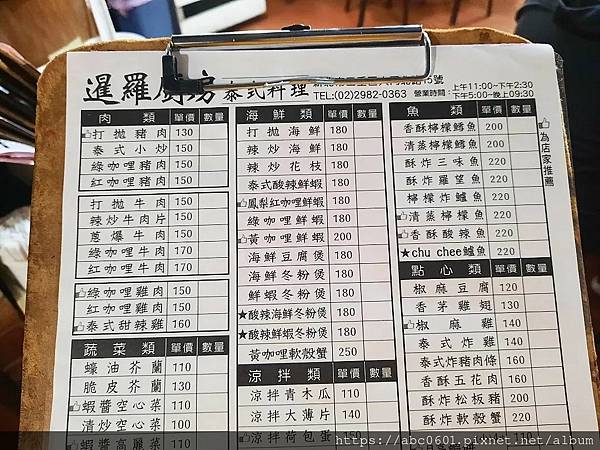 暹羅廚坊 泰式料理
TEL:(02)2982-0363
營業時間:上午11:00~下午2:30
下午5:00~晚上09:30
肉類 單價 數量
打拋豬肉 130
泰式小炒 150
綠咖哩豬肉 150
紅咖哩豬肉 150
打拋牛肉 150
辣炒牛肉片 150
蔥爆牛肉 150
綠咖哩牛肉 170
紅咖哩牛肉 170
綠咖哩雞肉 150
紅咖哩雞肉 150
泰式甜辣雞 160
蔬菜類 單價 數量
蠔油芥蘭 110
脆皮芥蘭 130
蝦醬空心菜 110
清炒空心菜 100
蝦醬高麗菜 110
海鮮類 單價 數量
打拋海鮮 180
辣炒海鮮 180
辣炒花枝 180
泰式酸辣鮮蝦 180
鳳梨紅咖哩鮮蝦 180
綠咖哩鮮蝦 180
黃咖哩鮮蝦 200
海鮮豆腐煲 180
海鮮冬粉煲 180
鮮蝦冬粉煲 180
★酸辣海鮮冬粉煲 180
★酸辣鮮蝦冬粉煲 180
黃咖哩軟殼蟹 250
涼拌類 單價 數量
涼拌青木瓜 110
涼拌大薄片 140
涼拌荷包蛋 150
魚類 單價 數量
香酥檸檬鱈魚 200
清蒸檸檬鱈魚 200
酥炸三味魚 220
酥炸羅望魚 220
檸檬炸鱸魚 220
清蒸檸檬魚 220
香酥酸辣魚 220
★chu chee鱸魚 220
點心類 單價 數量
椒麻豆腐 120
香茅雞翅 130
椒麻雞 140
泰式炸雞 140
泰式炸豬肉條 160
香酥五花肉 160
酥炸松板豬 220
酥炸軟殼蟹 220
110
為店家推薦
https://abc0601.pixnet.net/album